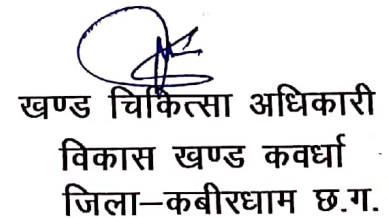 खण्ड चिकित्सा अधिकारी
विकास खण्ड कवर्धा
जिला–कबीरधाम छ.ग.